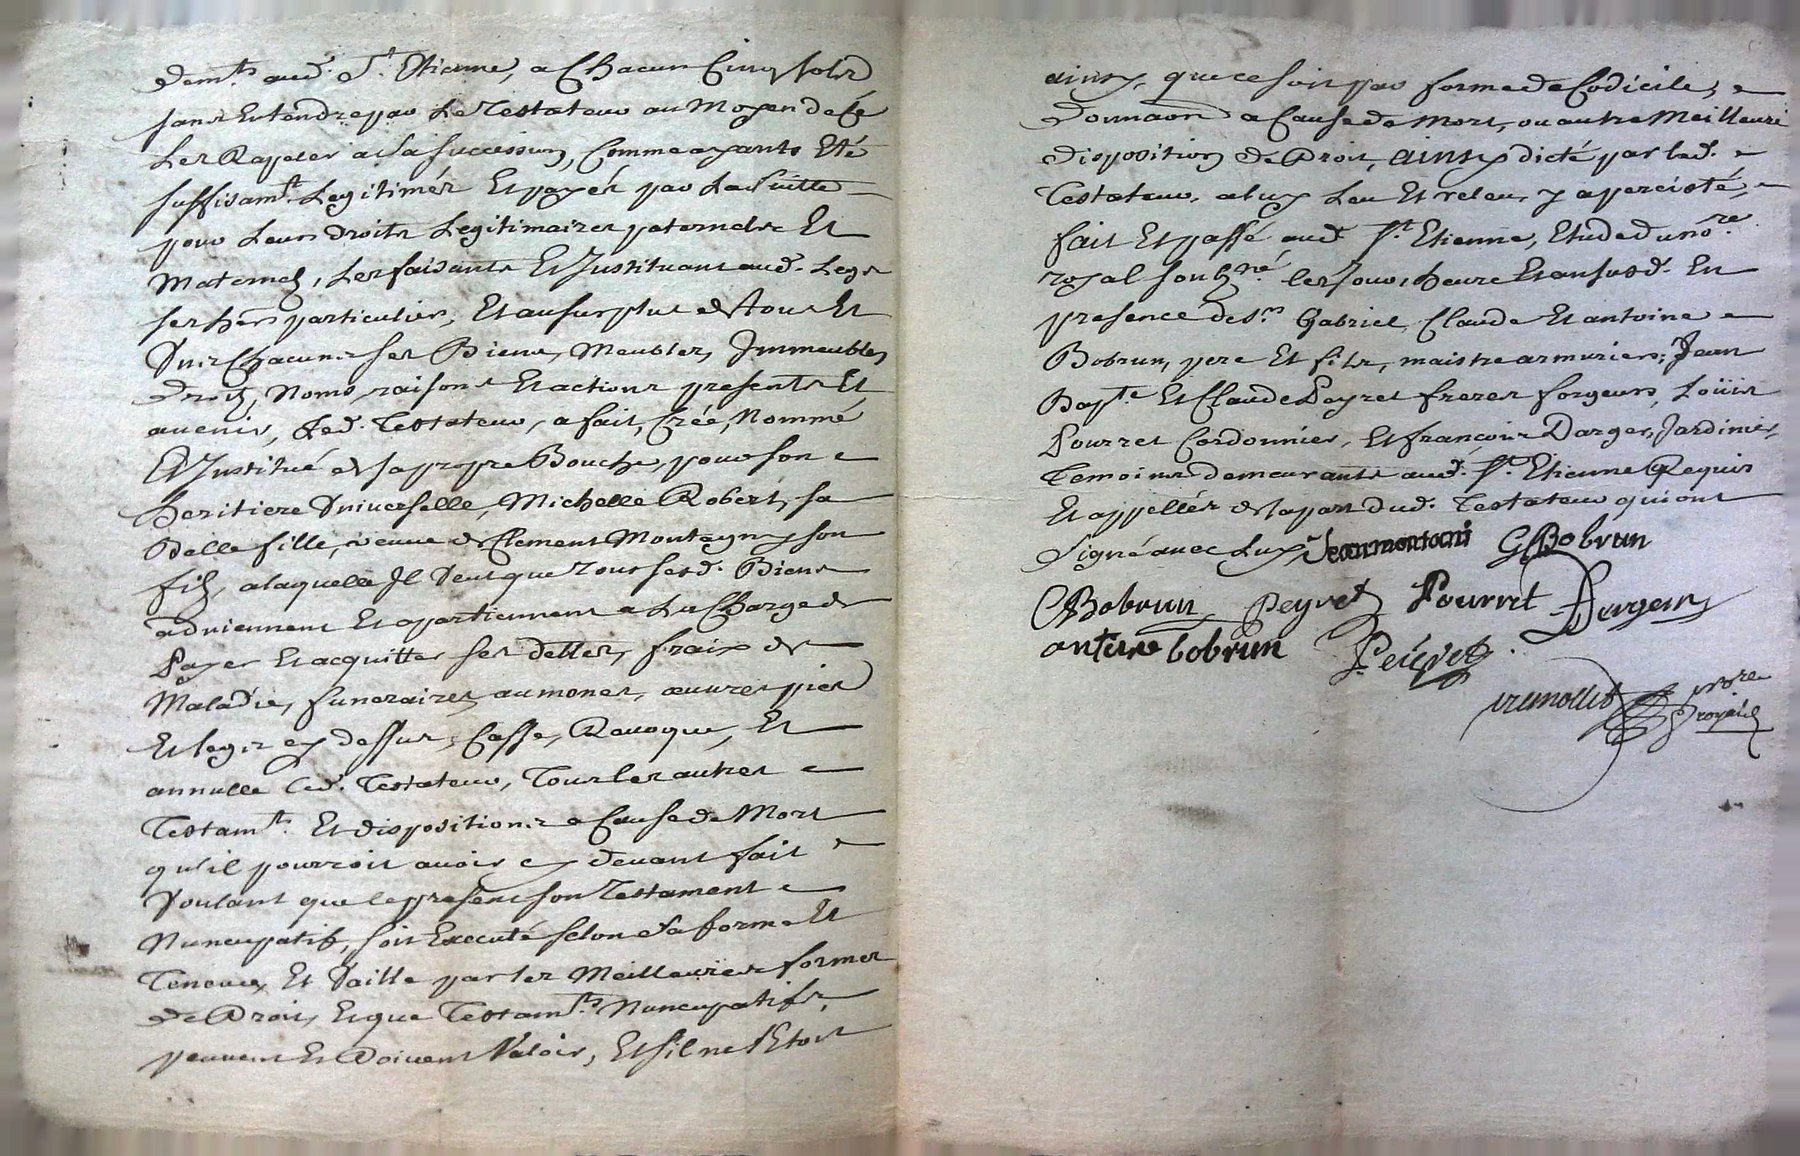 dem.ts aud. St. Etienne, a Chacun Cinq sols
sans Entendre par Le Testateur au Moyen de Ce
Les Rapeler a sa succession, Comme ayants Eté
suffisam.t Legitimés Et payés par La suitte
pour Leurs droits Legitimaires paternels Et
Maternels, Les faisants Et Instituant aud. Legs
ses hers particuliers, Et au surplus de tous Et
Uns Chacuns ses Biens, Meubles, Immeubles
droits, Noms, raisons Et actions presents Et
avenir, Led. Testateur, a fait, Créé, Nommé
Et Institué de sa propre Bouche, pour son
heritiere Universelle, Michelle Robert, sa
Belle fille, veuve de Clement Montagny son
fils, a laquelle Il Veut que Tous sesd. Biens
adviennent Et apartiennent a La Charge de
Payer Et acquitter ses dettes, fraix de
Maladie, funeraires, aumones, œuvres pies
Et legs cy dessus, Casse, Revoque, Et
annulle Led. Testateur, Tous les autres
Testam.ts Et dispositions a Cause de Mort
qu'il pourroit avoir cy devant fait
Voulant que le present son Testament
Nuncupatif, soit Executé selon sa forme Et
Teneur, Et Vaille par les Meilleures formes
de Droit, Et que Testam.ts Nuncupatifs,
peuvent Et Doivent Valoir, Et s'il ne l'Etoit
ainsy, que ce soit par forme de Codicile,
Donnaon a Cause de Mort, ou autre Meilleure
disposition de Droit, ainsy dicté par led.
Testateur, a luy Leu Et releu, y a percisté,
fait Et passé aud. St. Etienne, Etude du no.re
royal soubs.né les Jour, heure Et an susd. En
presence des.rs Gabriel, Claude Et antoine
Bobrun, pere Et fils, maistre armuriers; Jean
Bapt.e Et Claude Peyret freres forgeurs, Loüis
Pourret Cordonnier, Et françois Darger, Jardinier,
Temoins demeurants aud. St. Etienne Requis
Et appellés de la part dud. Testateur qui ont
signé avec Luy, Jean montani GBobrun
CBobrun Peyret Pourret
antoine bobrun Peyret
no.re
royal